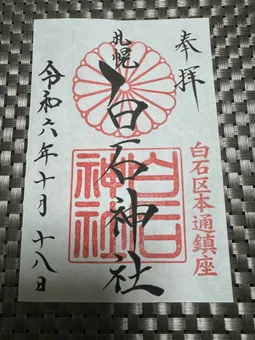 奉拝
白石区本通鎮座
札幌
白石神社
白石
神社
令和六年十月十八日